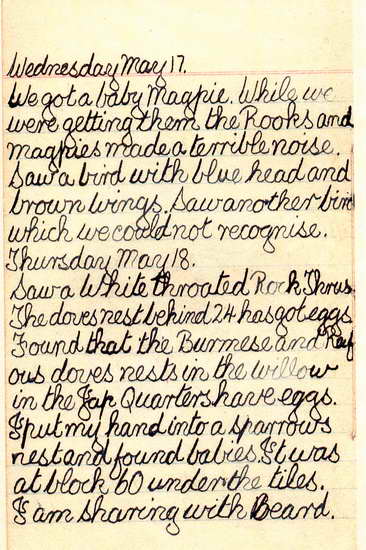 Wednesday May 17.
We got a baby Magpie. While we
were getting them the Rooks and
magpies made a terrible noise.
Saw a bird with blue head and
brown wings. Saw another bird
which we could not recognise.
Thursday May 18.
Saw a White throated Rock Thrus
The doves nest behind 24 has got eggs
Found that the Burmese and Ruf
ous doves nests in the willow
in the Jap Quarters have eggs.
I put my hand into a sparrows
nest and found babies. It was
at block 60 under the tiles.
I am sharing with Beard.